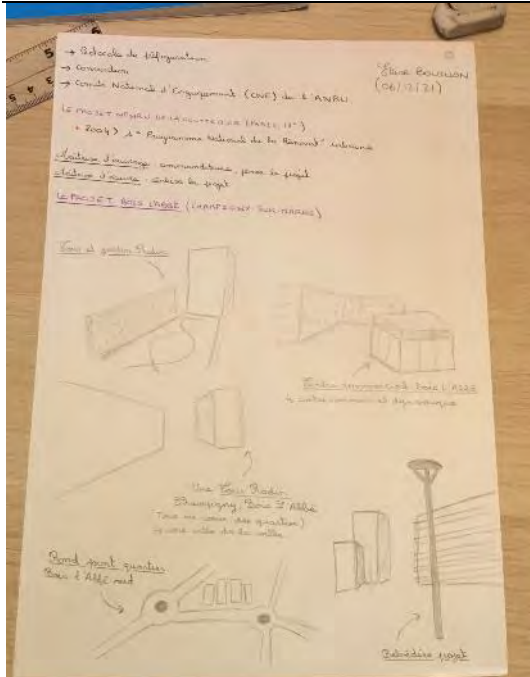 → Protocole de Préfiguration
→ Convention
→ Comité National d'Engagement (CNE) de l'ANRU
(06/12/21)
LE PROJET
(PARIS 11°)
2004 → 1er "Programme National de la Rénovat° urbaine
Maîtrise d'ouvrage : commanditaire, pense le projet
Maîtrise d'œuvre : réalise le projet
LE PROJET BOIS L'ABBÉ (CHAMPIGNY-SUR-MARNE)
Tour et jardin Rodin
Centre commercial Bois L'Abbé
↳ centre commun et dynamique
Une Tour Rodin
Champigny, Bois L'Abbé
Tour au cœur des quartiers
Rond point quartier
Bois l'Abbé sud
Belvédère projet